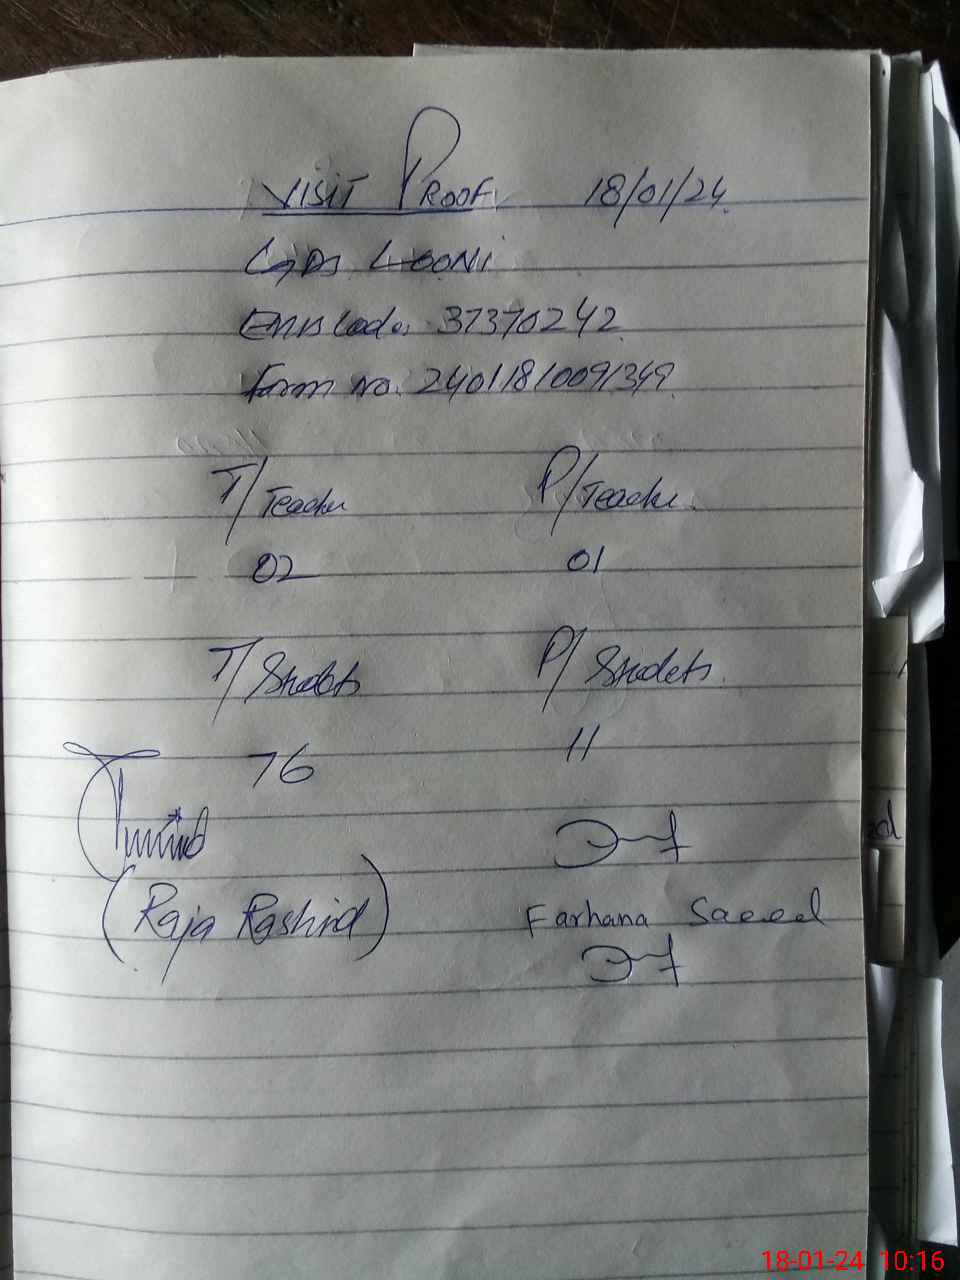 VISIT PROOF 18/01/24
GPS LOONI
EMIS Code. 37370242
Form no. 24011810091349
T/Teacher P/Teacher.
02 01
T/Studets P/Studets.
76 11
(Raja Rashid) Farhana Saeed
18-01-24 10:16